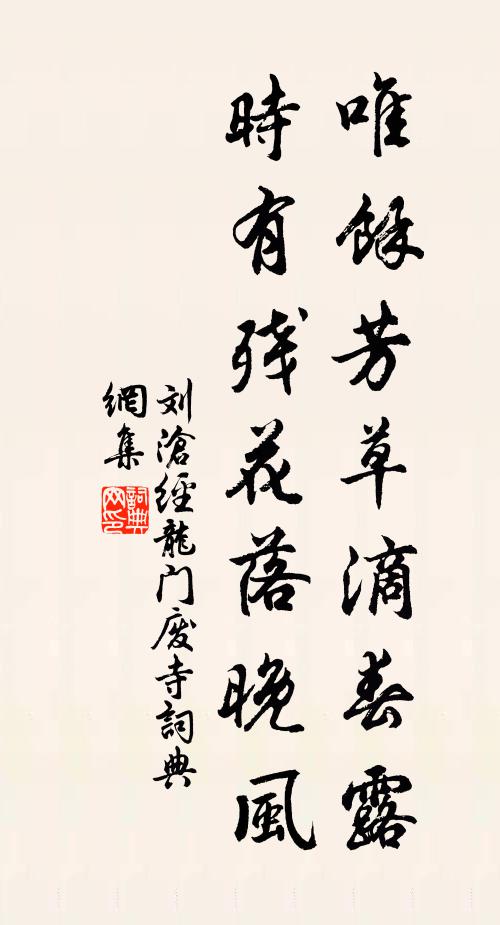 唯餘芳草滴春露
時有残花落晚風
刘滄經龍门废寺詞典
網集
詞典網印